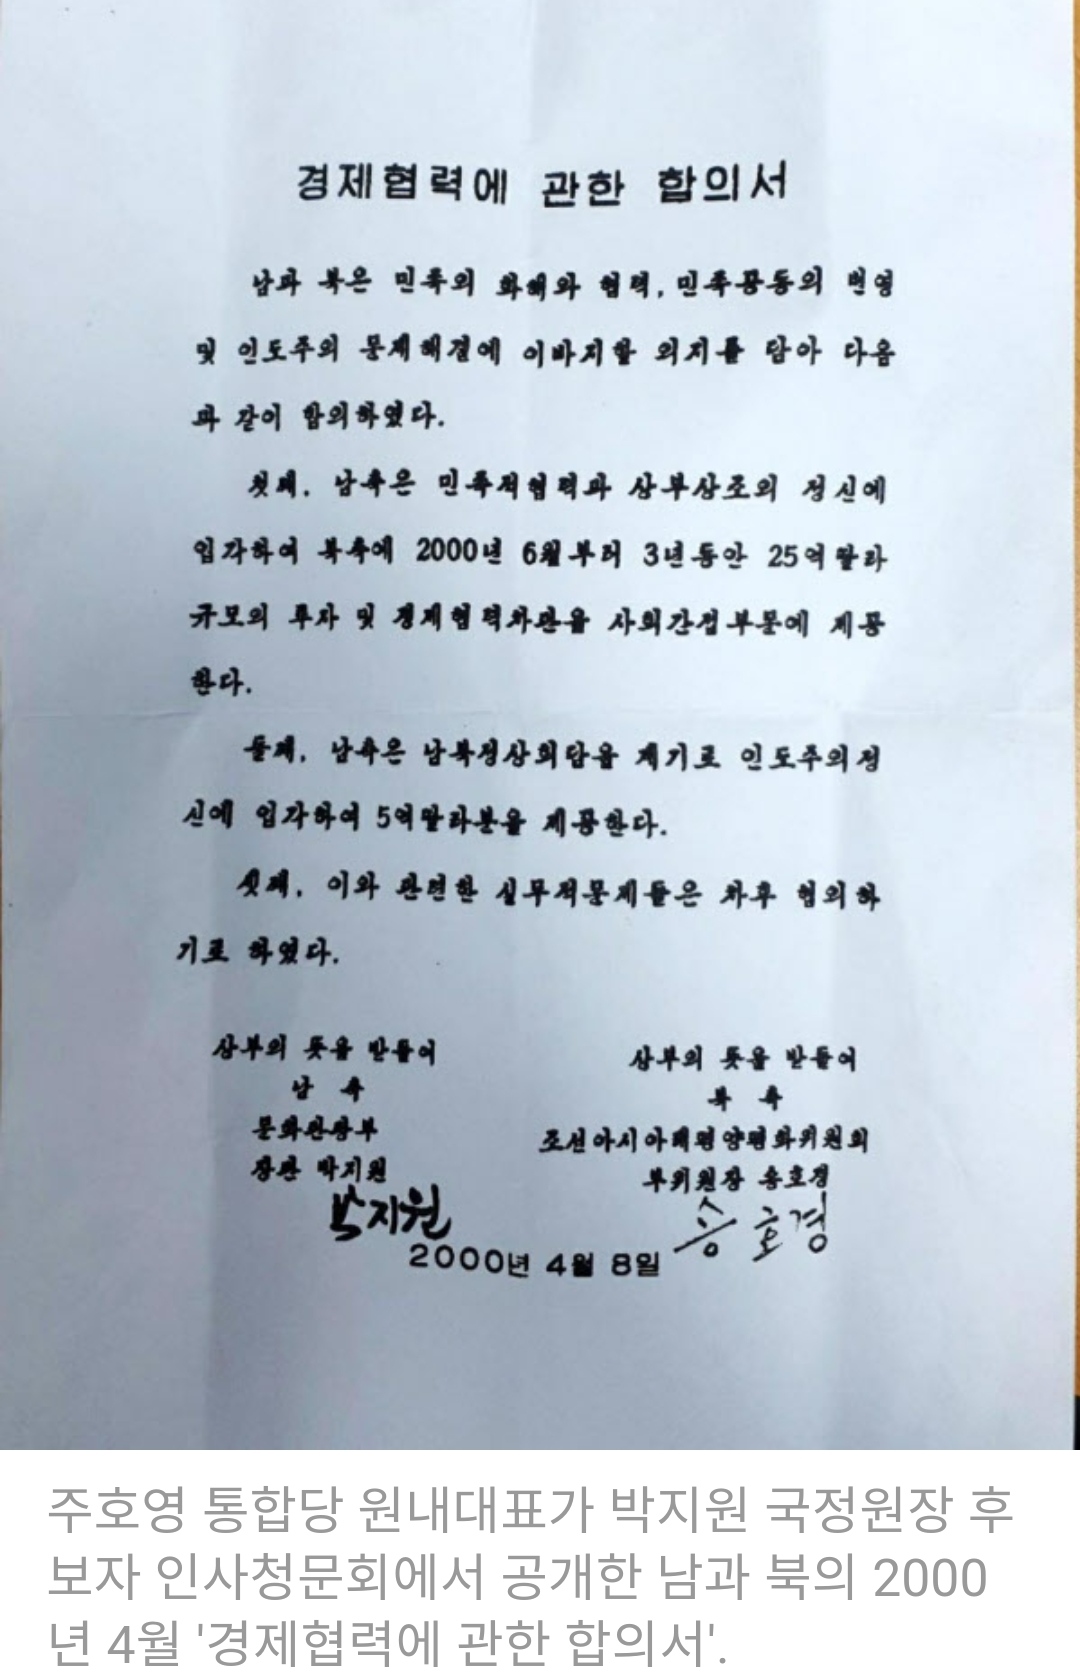 경제협력에 관한 합의서
남과 북은 민족의 화해와 협력, 민족공동의 번영
및 인도주의 문제해결에 이바지할 의지를 담아 다음
과 같이 합의하였다.
첫째, 남측은 민족적협력과 상부상조의 정신에
입각하여 북측에 2000년 6월부터 3년동안 25억딸라
규모의 투자 및 경제협력차관을 사회간접부문에 제공
한다.
둘째, 남측은 남북정상회담을 계기로 인도주의정
신에 입각하여 5억딸라분을 제공한다.
셋째, 이와 관련한 실무적문제들은 차후 협의하
기로 하였다.
상부의 뜻을 받들어
남 측
문화관광부
장관 박지원
박지원
상부의 뜻을 받들어
북 측
조선아시아태평양평화위원회
부위원장 송호경
송호경
2000년 4월 8일
주호영 통합당 원내대표가 박지원 국정원장 후
보자 인사청문회에서 공개한 남과 북의 2000
년 4월 '경제협력에 관한 합의서'.